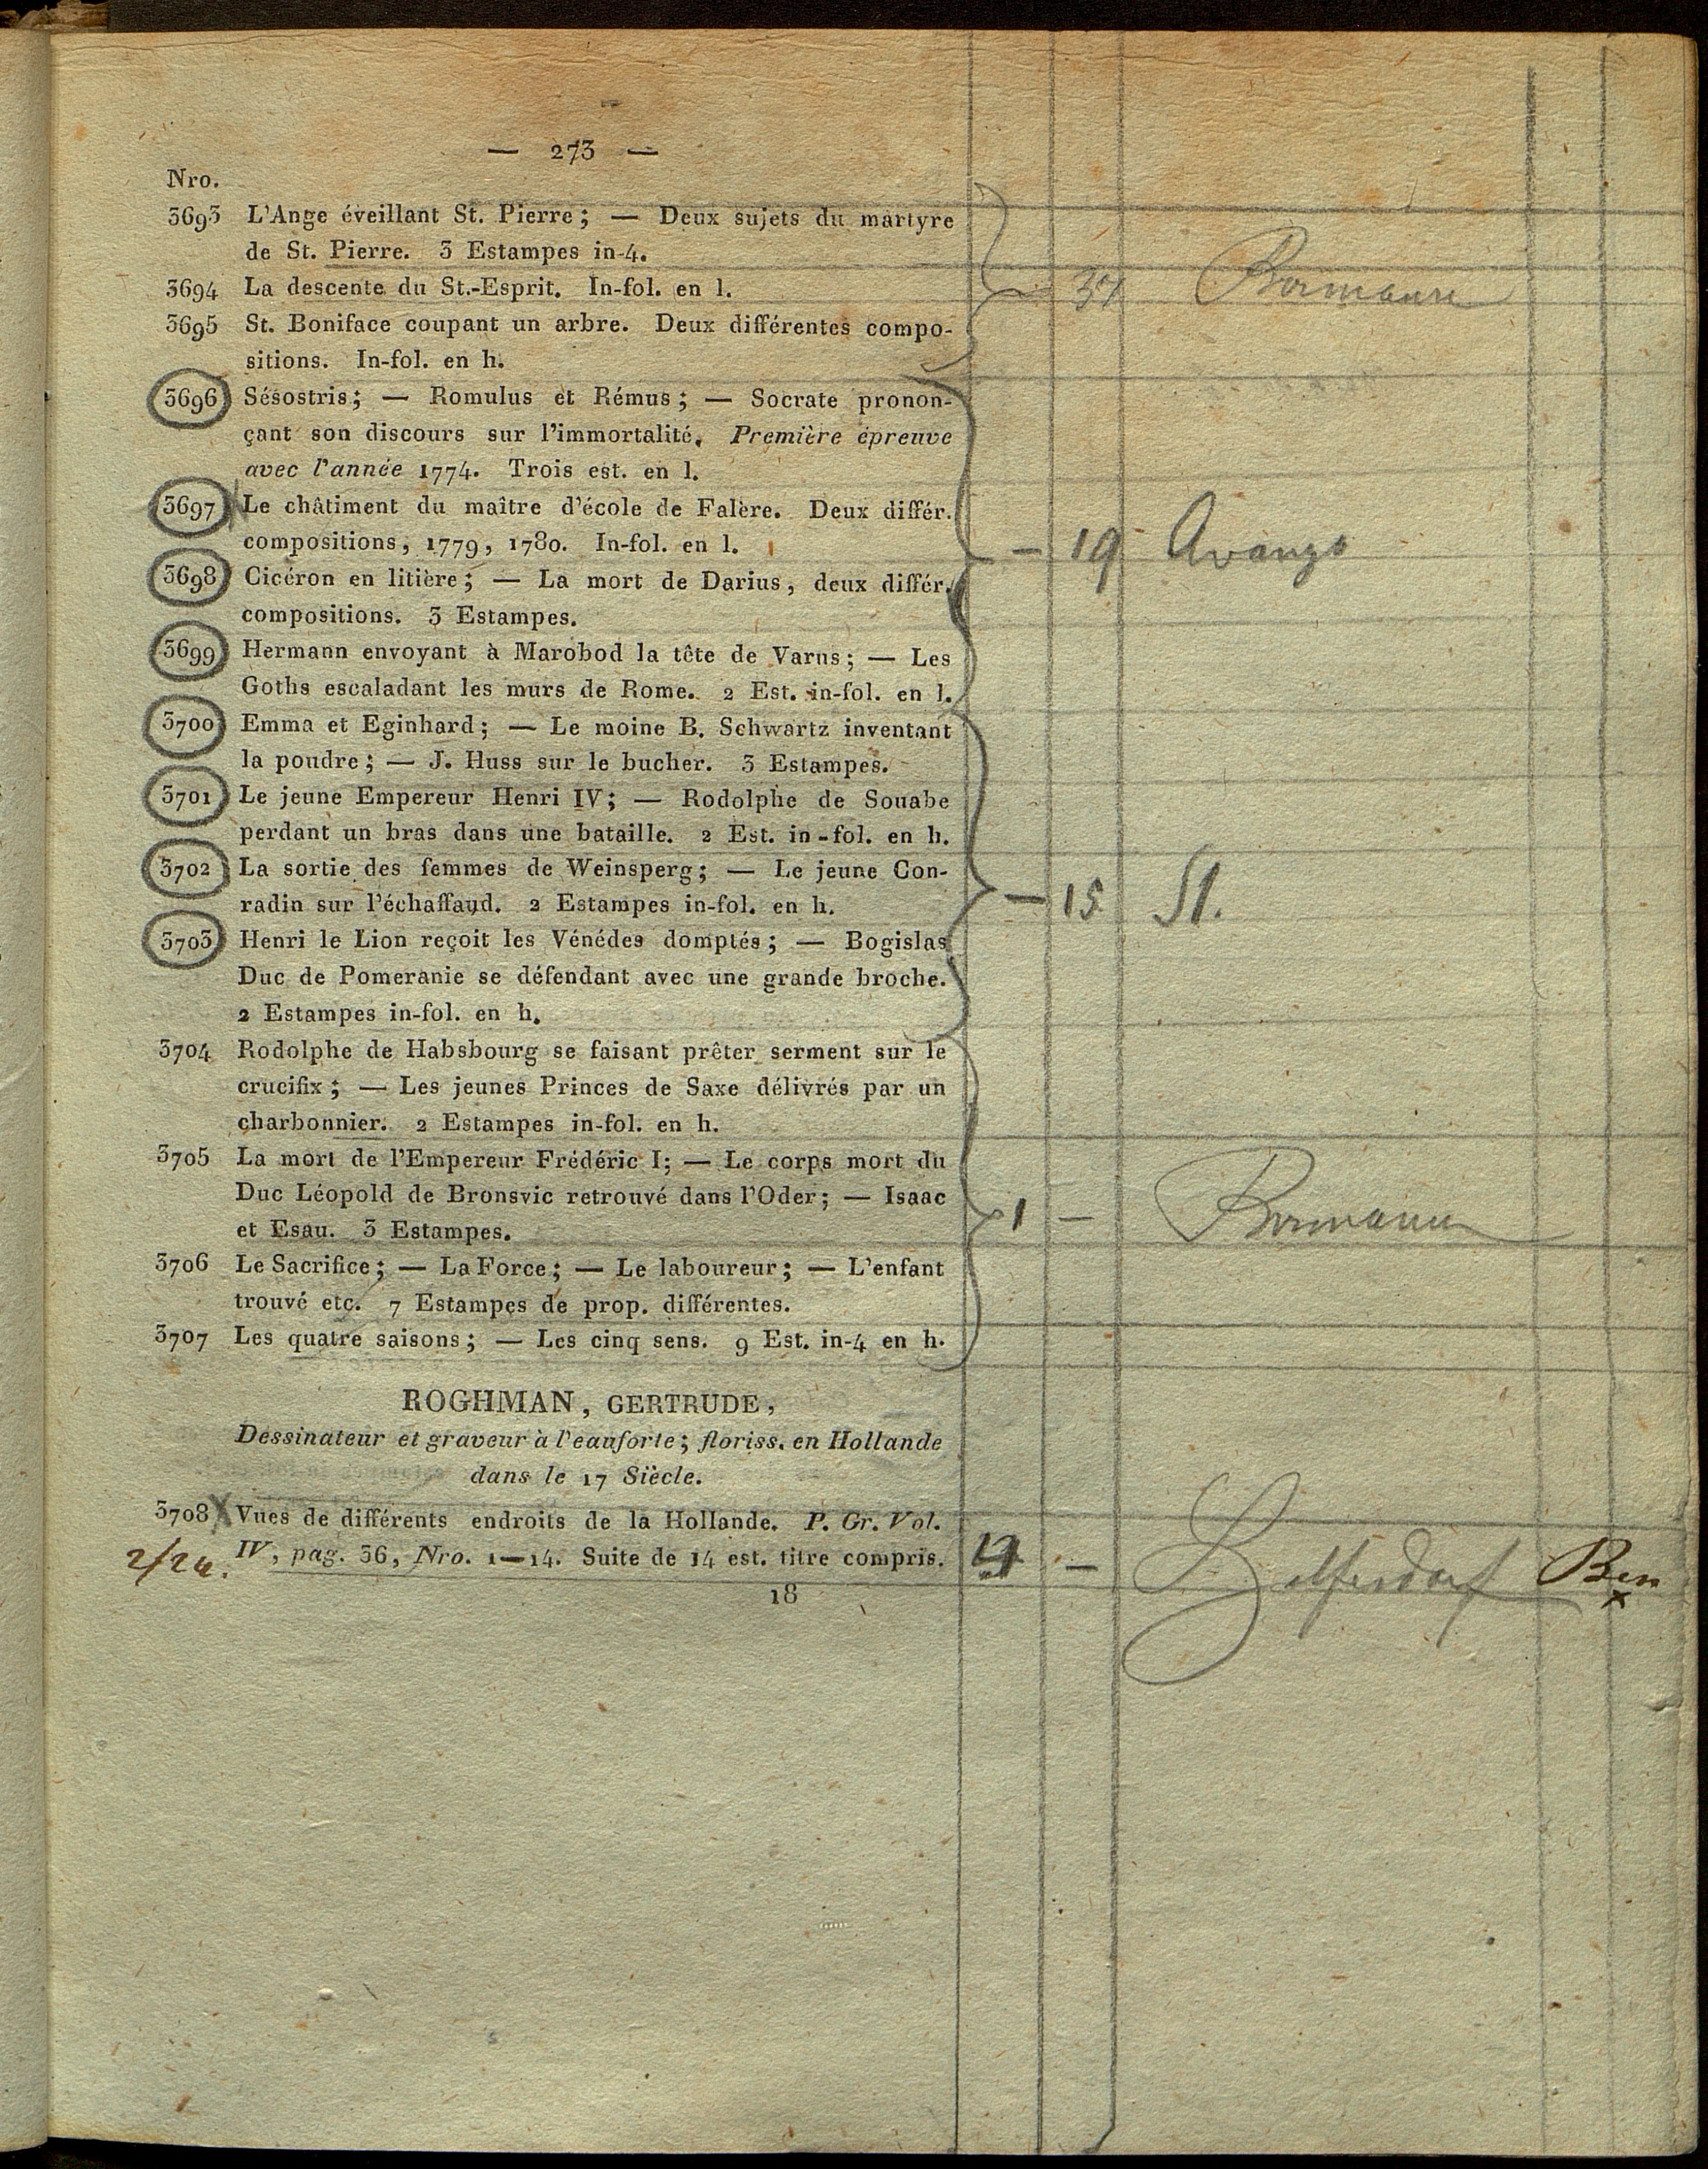 — 273 —
Nro.
3693 L'Ange éveillant St. Pierre; — Deux sujets du martyre
de St. Pierre. 3 Estampes in-4.
3694 La descente du St.-Esprit. In-fol. en l.
3695 St. Boniface coupant un arbre. Deux différentes compo-
sitions. In-fol. en h.
3696 Sésostris; — Romulus et Rémus; — Socrate pronon-
çant son discours sur l'immortalité. Première épreuve
avec l'année 1774. Trois est. en l.
3697 Le châtiment du maître d'école de Falère. Deux différ.
compositions, 1779, 1780. In-fol. en l.
— 19 Avanzo
3698 Cicéron en litière; — La mort de Darius, deux différ.
compositions. 3 Estampes.
3699 Hermann envoyant à Marobod la tête de Varus; — Les
Goths escaladant les murs de Rome. 2 Est. in-fol. en l.
3700 Emma et Eginhard; — Le moine B. Schwartz inventant
la poudre; — J. Huss sur le bucher. 3 Estampes.
3701 Le jeune Empereur Henri IV; — Rodolphe de Souabe
perdant un bras dans une bataille. 2 Est. in-fol. en h.
3702 La sortie des femmes de Weinsperg; — Le jeune Con-
radin sur l'échaffaud. 2 Estampes in-fol. en h.
— 15 St.
3703 Henri le Lion reçoit les Vénédes domptés; — Bogislas
Duc de Pomeranie se défendant avec une grande broche.
2 Estampes in-fol. en h.
3704 Rodolphe de Habsbourg se faisant prêter serment sur le
crucifix; — Les jeunes Princes de Saxe délivrés par un
charbonnier. 2 Estampes in-fol. en h.
3705 La mort de l'Empereur Frédéric I; — Le corps mort du
Duc Léopold de Bronsvic retrouvé dans l'Oder; — Isaac
et Esau. 3 Estampes.
1 —
3706 Le Sacrifice; — La Force; — Le laboureur; — L'enfant
trouvé etc. 7 Estampes de prop. différentes.
3707 Les quatre saisons; — Les cinq sens. 9 Est. in-4 en h.
ROGHMAN, GERTRUDE,
Dessinateur et graveur à l'eauforte; floriss. en Hollande
dans le 17 Siècle.
3708 Vues de différents endroits de la Hollande. P. Gr. Vol.
IV, pag. 56, Nro. 1—14. Suite de 14 est. titre compris.
18